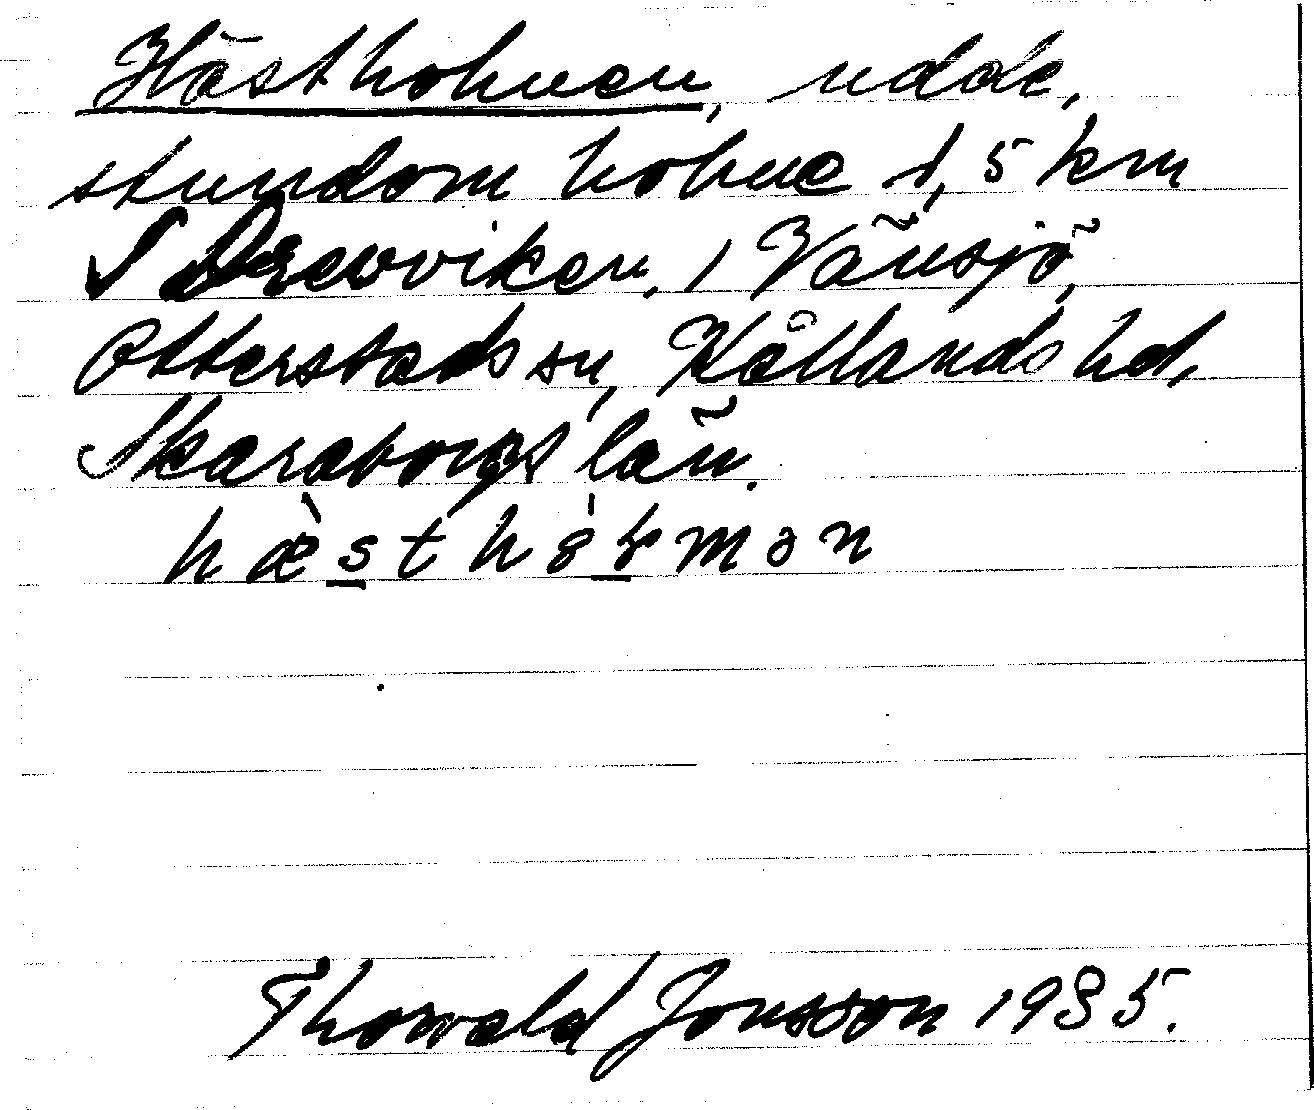 Hästholmen, udde,
stundom holme 1,5 km
S Drevviken, i Vänsjö,
Otterstads sn, Kållands hd,
Skaraborgs län.
Thorvald Jonsson 1935.